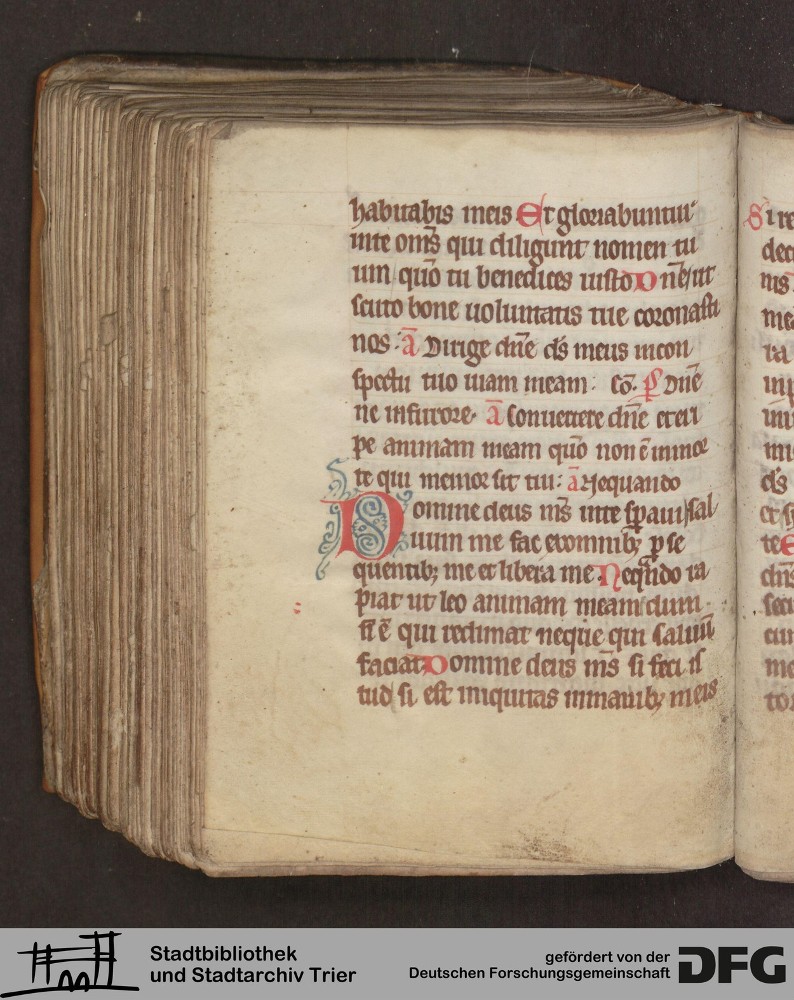 habitabis meis Et gloriabuntur
in te om̅s qui diligunt nomen tu
um quo̅ tu benedices iusto Dn̅e ut
scuto bone uoluntatis tue coronasti
nos : a̅ Dirige dn̅e ds̅ meus in con
spectu tuo uiam meam : p̅s Dn̅e
ne in furore · a̅ Conuertere dn̅e et eri
pe animam meam quo̅ non e̅ in mor
te qui memor sit tui : a̅ Nequando
Domine deus ms̅ in te speraui sal
uum me fac ex omnibꝫ ꝑse
quentibꝫ me et libera me Neqn̅do ra
piat ut leo animam meam dum
n̅ e̅ qui redimat neque qui saluu̅
faciat Domine deus ms̅ si feci is
tud si est iniquitas in manibꝫ meis
Si re
dec
ms̅
mea
ra
ds̅
et
te
dn̅s
secu
cu
me
tor
Stadtbibliothek
und Stadtarchiv Trier
gefördert von der
Deutschen Forschungsgemeinschaft
DFG